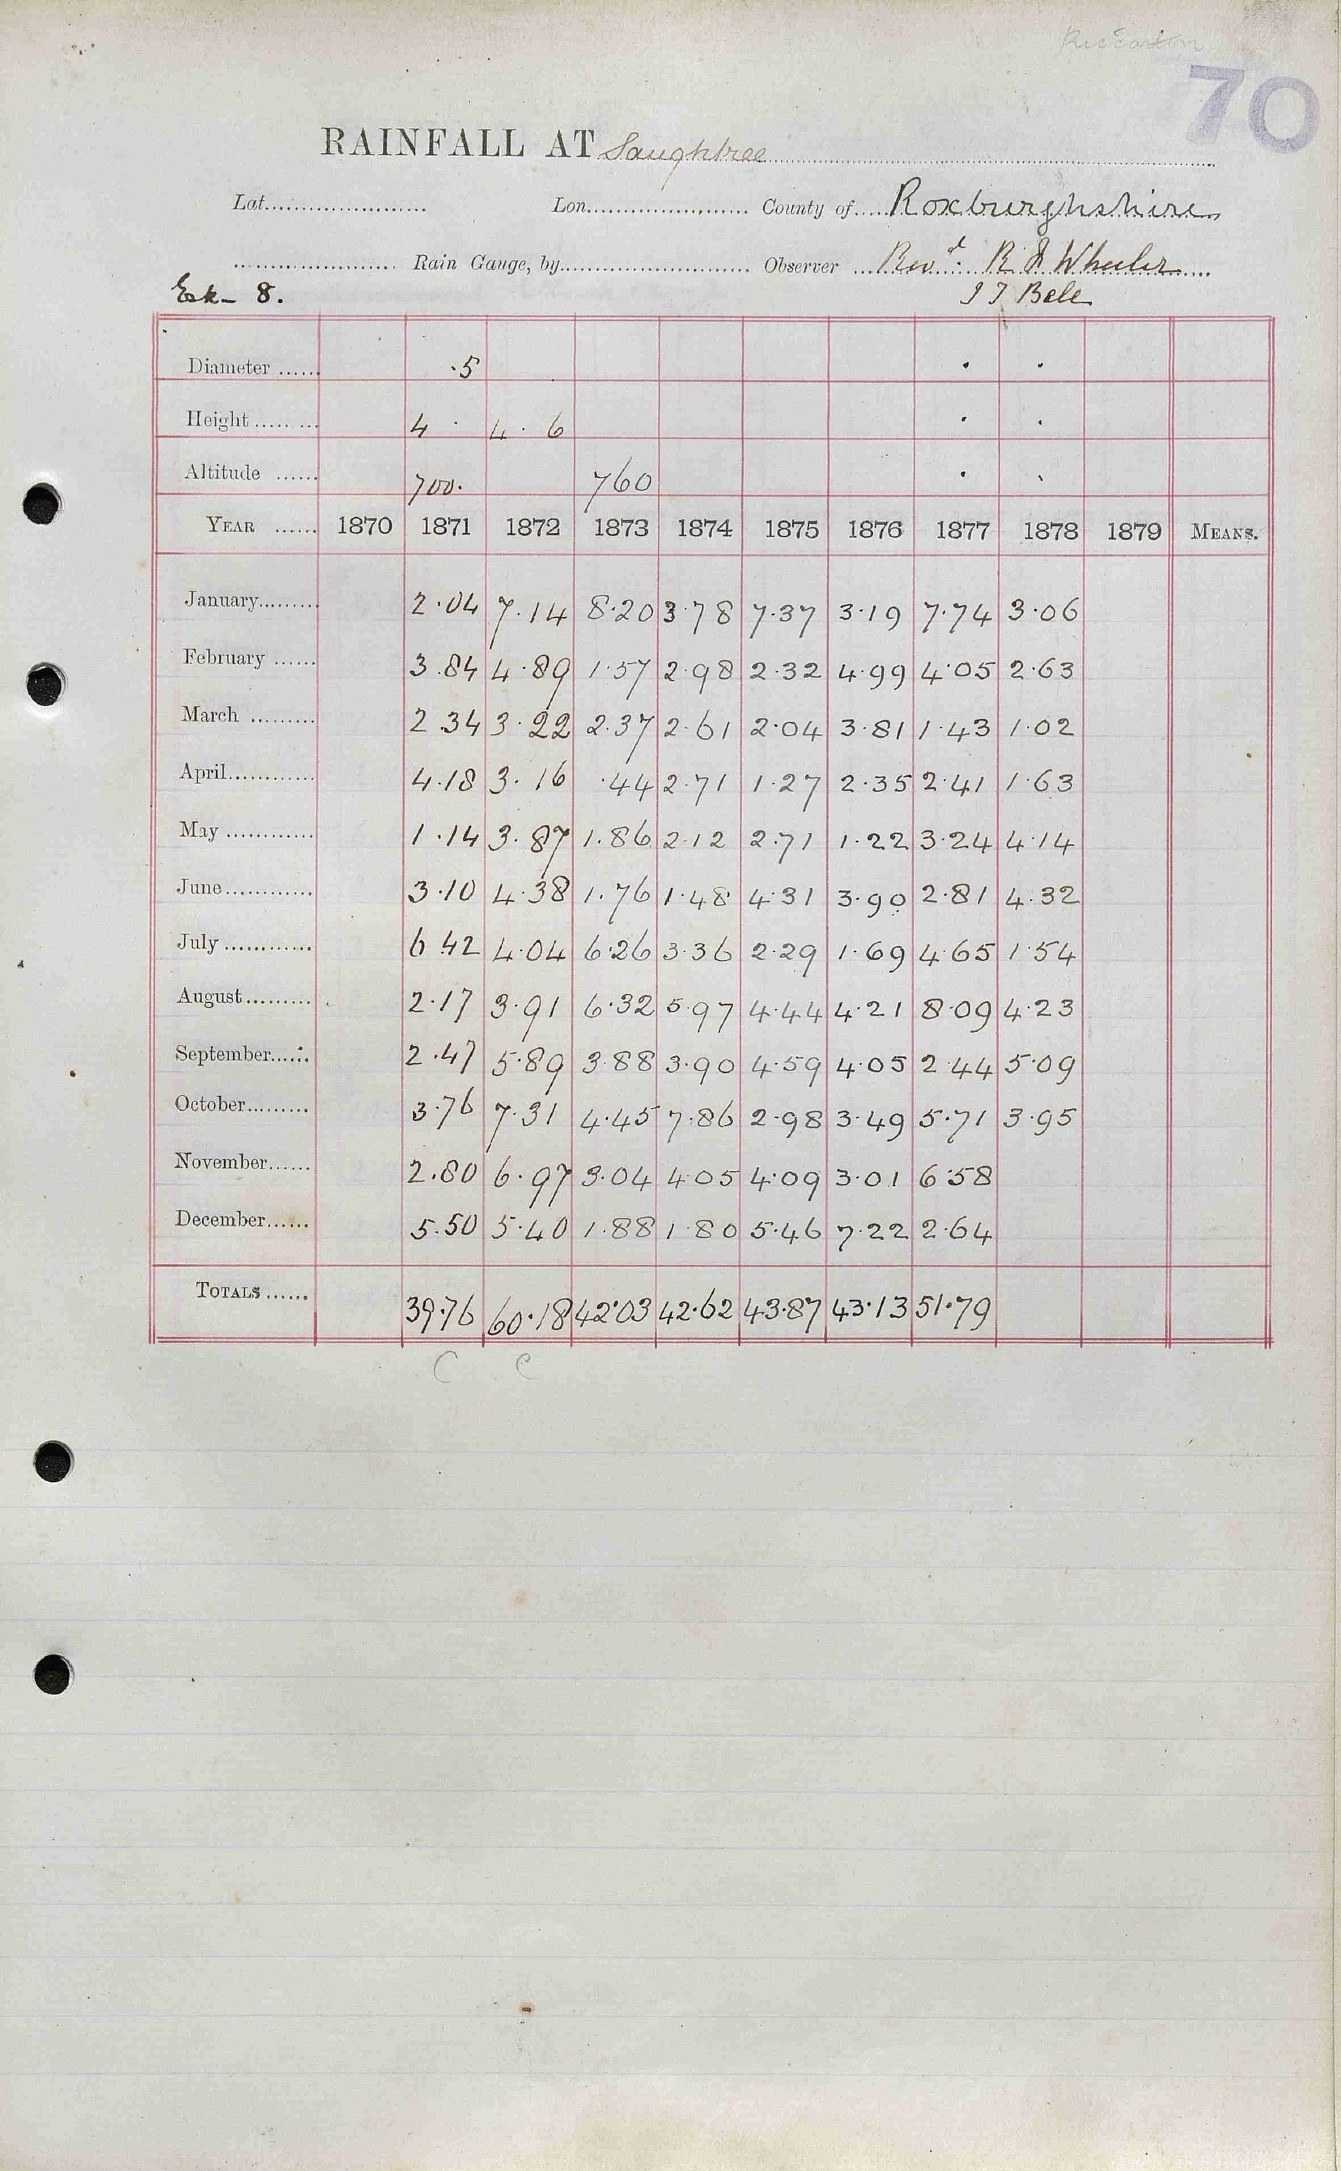 Riccarton
70
RAINFALL AT Saughtree
Lat. Lon. County of Roxburghshire
Rain Gauge, by Observer Revd. R S Wheeler
Esk 8. J T Bell
Diameter ...... .5 . .
Height ...... 4 . 4 . 6 . .
Altitude ...... 700. 760 . .
YEAR ...... 1870 1871 1872 1873 1874 1875 1876 1877 1878 1879 MEANS.
January......... 2.04 7.14 8.20 3.78 7.37 3.19 7.74 3.06
February ...... 3.84 4.89 1.57 2.98 2.32 4.99 4.05 2.63
March ......... 2.34 3.22 2.37 2.61 2.04 3.81 1.43 1.02
April............ 4.18 3.16 .44 2.71 1.27 2.35 2.41 1.63
May ............ 1.14 3.87 1.86 2.12 2.71 1.22 3.24 4.14
June............ 3.10 4.38 1.76 1.48 4.31 3.90 2.81 4.32
July ............ 6.42 4.04 6.26 3.36 2.29 1.69 4.65 1.54
August......... 2.17 3.91 6.32 5.97 4.44 4.21 8.09 4.23
September...... 2.47 5.89 3.88 3.90 4.59 4.05 2.44 5.09
October......... 3.76 7.31 4.45 7.86 2.98 3.49 5.71 3.95
November...... 2.80 6.97 3.04 4.05 4.09 3.01 6.58
December...... 5.50 5.40 1.88 1.80 5.46 7.22 2.64
TOTALS ...... 39.76 60.18 42.03 42.62 43.87 43.13 51.79
C C